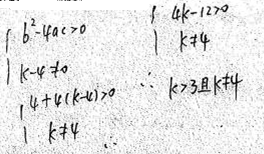 b²-4ac>0
k-4≠0
4+4(k-4)>0
k≠4
4k-12>0
k≠4
∴ k>3且k≠4